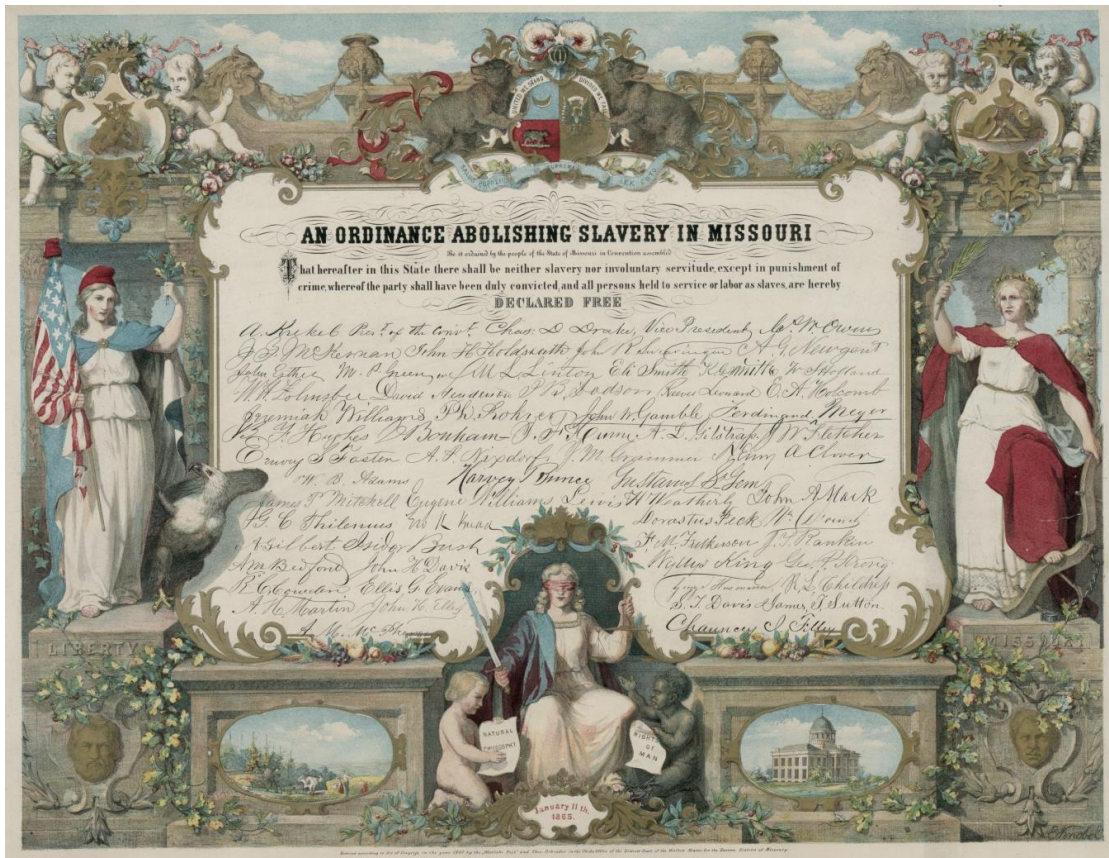 UNITED WE STAND DIVIDED WE FALL
SALUS POPULI SUPREMA LEX ESTO
AN ORDINANCE ABOLISHING SLAVERY IN MISSOURI
Be it ordained by the people of the State of Missouri in Convention assembled
That hereafter in this State there shall be neither slavery nor involuntary servitude, except in punishment of
crime, whereof the party shall have been duly convicted, and all persons held to service or labor as slaves, are hereby
DECLARED FREE
A. Krekel Pres.t of the Conv.t Chas. D Drake, Vice President W. Owens
J. F. McKernan John H Holdsworth John R Swearingen A G Newgent
John Esther M. P. Green M L Linton Eli Smith K G Smith W Holland
David Henderson J B Dodson Reeves Leonard E. A. Holcomb
Jeremiah Williams P. Rohrer John W. Gamble Ferdinand Meyer
Hughes Bonham A. L. Gilstrap J W Fletcher
Emory S Foster A. P. Nixdorf J. M. Grammer Henry A Clover
W. B. Adams Harvey Bunce Gustavus St Gem
James T. Mitchell Eugene Williams Lewis H Weatherby John A Mack
G. C. Thilenius Dorastus Peck
A Gilbert Isidor Bush F. M. Fulkerson J. T. Rankin
Am Bedford John H Davis Wyllys King Geo. P. Strong
Ellis G. Evans R. L. Childress
A. H. Martin John H. Ellis S. T. Davis James T. Sutton
A. M. McPherson Chauncey I. Filley
LIBERTY
MISSOURI
NATURAL
PHILOSOPHY
RIGHTS
OF
MAN
January 11th,
1865.
E. Knobel